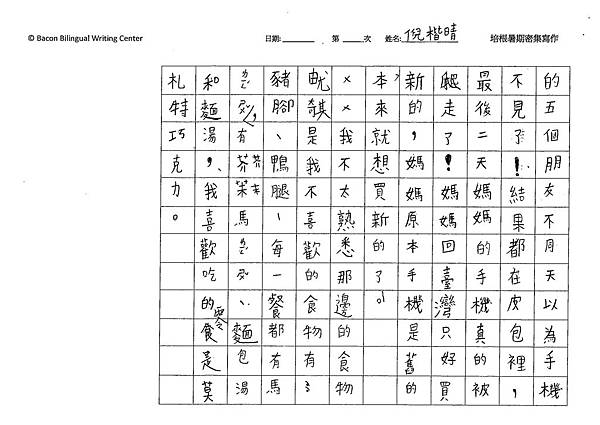 © Bacon Bilingual Writing Center
日期:______ 第____次 姓名: 倪楷晴
培根暑期密集寫作
的五個朋友不同天以為手機
不見了!結果都在皮包裡,
最後二天媽媽的手機真的被
爬走了!媽媽回臺灣只好買
新的,媽媽原本手機是舊的
本來就想買新的了。
××我不太熟悉那邊的食物
是我不喜歡的食物有:
豬腳、鴨腿、每一餐都有馬
有芥茉馬、麵包湯
和麵湯,、我喜歡吃的零食是莫
札特巧克力。